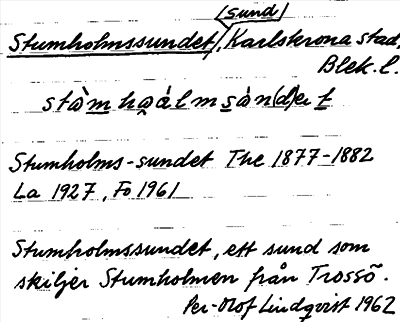 (sund)
Stumholmssundet, Karlskrona stad,
Blek. l.
stàmhǫálmsán(d)et
Stumholms-sundet The 1877-1882
La 1927, Fo 1961
Stumholmssundet, ett sund som
skiljer Stumholmen från Trossö.
Per-Olof Lindqvist 1962